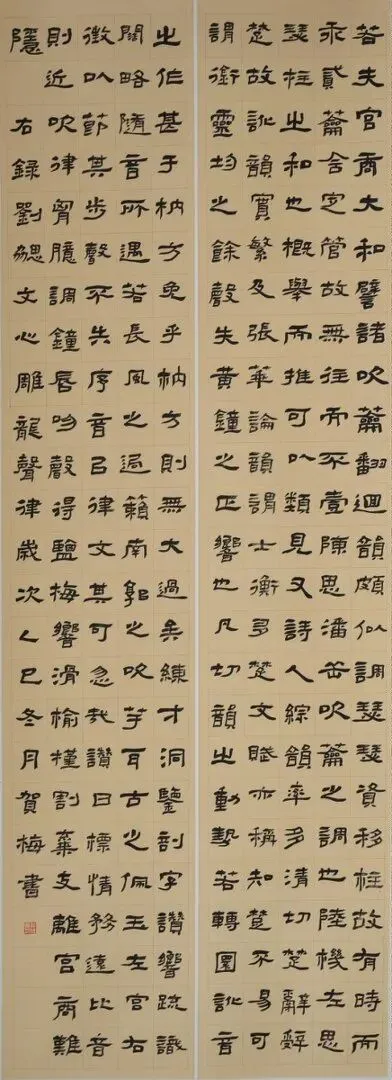 若夫宮商大和譬諸吹籥翻迴韻頗似調瑟瑟資移柱故有時而
乖貳籥舍定管故無往而不壹陳思潘岳吹籥之調也陸機左思
瑟柱之和也概舉而推可以類見又詩人綜韻率多清切楚辭辭
楚故訛韻實繁及張華論韻謂士衡多楚文賦亦稱知楚不易可
謂銜靈均之餘聲失黃鐘之正響也凡切韻之動勢若轉圜訛音
之作甚于枘方免乎枘方則無大過矣練才洞鑒剖字讚響疏識
闊略隨音所遇若長風之過籟南郭之吹竽耳古之佩玉左宮右
徵以節其步聲不失序音以律文其可忽哉讚曰標情務遠比音
則近吹律胸臆調鐘唇吻聲得鹽梅響滑榆槿割棄支離宮商難
隱 右錄劉勰文心雕龍聲律歲次乙巳冬月賀梅書